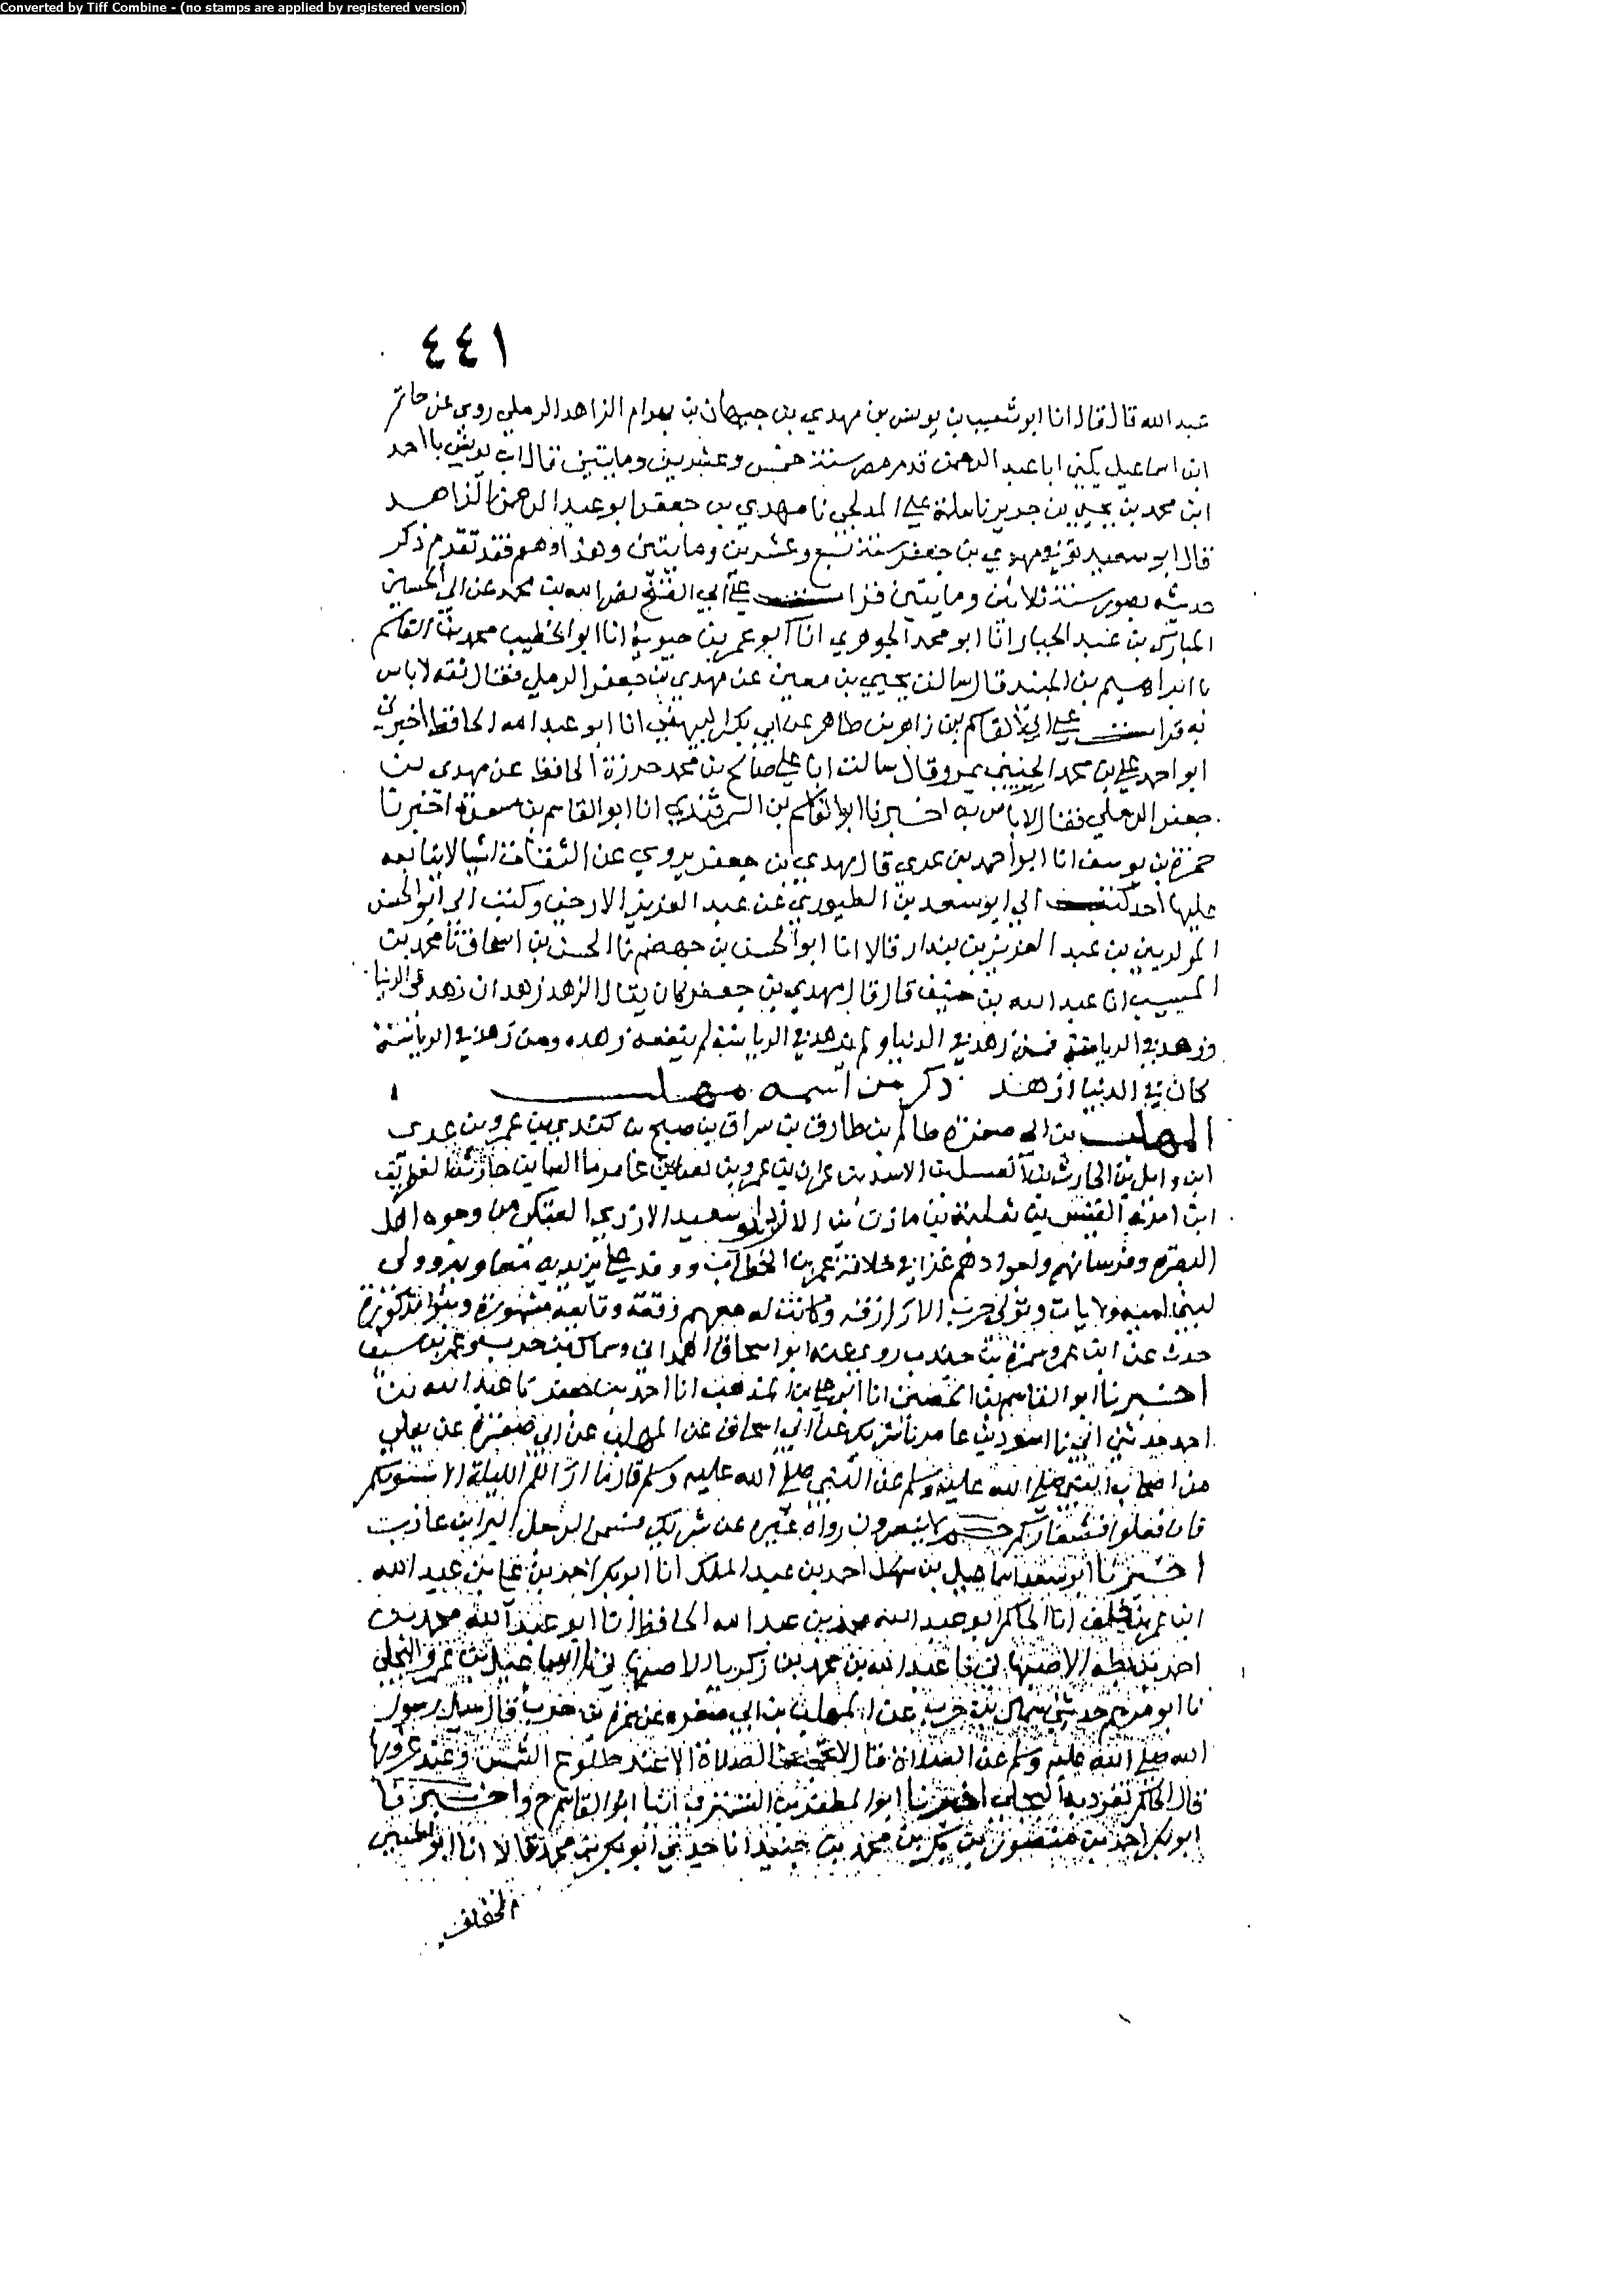 Converted by Tiff Combine - (no stamps are applied by registered version)
٤٤١
عبد الله قال قال انا ابو شعيب بن يونس بن مهدي بن جيهان بن بهرام الزاهد الرملي روى عن حاتم
ابن اسماعيل يكنى ابا عبد الرحمن قدم مصر سنة خمس وعشرين ومايتين قال ابن يونس نا احمد
ابن محمد بن يحيى بن جرير نا علي المدلجي نا مهدي بن جعفر ابو عبد الرحمن الزاهد
قال ابو سعيد توفي مهدي بن جعفر سنة تسع وعشرين ومايتين وهذا وهم فقد تقدم ذكر
حديثه بصور سنة ثلاثين ومايتين قرات على ابي الفتح نصر الله بن محمد عن ابي الحسين
المبارك بن عبد الجبار انا ابو محمد الجوهري انا ابو عمر بن حيوية انا ابو الخطيب محمد بن القاسم
نا ابراهيم بن الجنيد قال سالت يحيى بن معين عن مهدي بن جعفر الرملي فقال ثقه لاباس
به قرات على ابي القاسم بن زاهر بن طاهر عن ابي بكر البيهقي انا ابو عبد الله الحافظ اخبرني
ابو احمد علي بن محمد الحبيبي بمرو قال سالت ابا علي صالح بن محمد جزرة الحافظ عن مهدي بن
جعفر الرملي فقال لاباس به اخبرنا ابو القاسم بن السمرقندي انا ابو القاسم بن مسعدة اخبرنا
حمزة بن يوسف انا ابو احمد بن عدي قال مهدي بن جعفر يروي عن الثقات اشيا لا يتابعه
عليها احد كتب الي ابو سعد بن الطيوري عن عبد العزيز الازجي وكتب الي ابو الحسن
بن عبد العزيز بن بندار قالا انا ابو الحسن بن جهضم نا الحسن بن اسحاق نا محمد بن
المسيب انا عبد الله بن خبيق قال قال مهدي بن جعفر كان يقال الزهد زهدان زهد في الدنيا
وزهد في الرياسة فمن زهد في الدنيا ولم يزهد في الرياسة لم ينفعه زهده ومن زهد في الرياسة
كان في الدنيا ازهد ذكر من اسمه مهلب
المهلب بن ابي صفرة ظالم بن طارق بن سراق بن صبح بن كندي بن عمرو بن عدي
ابن وايل بن الحارث بن الاسد بن عمران بن عمرو بن عامر ما السما بن حارثة الغطريف
ابن امرئ القيس بن ثعلبة بن مازن بن الازد ابو سعيد الازدي العتكي من وجوه اهل
البصرة وفرسانهم غزا في خلافة عمر بن الخطاب ووفد على يزيد بن معاوية وولي
لبني اميه ولايات وتولى حرب الازارقة وكانت له معهم وقايع مشهورة
حدث عن ابن عمرو سمرة بن جندب روى عنه ابو اسحاق الهمداني وسماك بن حرب وعمر بن سيف
اخبرنا ابو القاسم بن الحصين انا ابو علي بن المذهب انا احمد بن جعفر نا عبد الله بن
احمد حدثني ابي نا اسود بن عامر نا شريك عن ابي اسحاق عن المهلب عن ابي صفرة عن رجل
من اصحاب النبي صلى الله عليه وسلم عن النبي صلى الله عليه وسلم قال ما اراكم الليلة الا سيبيتونكم
فان فعلوا فشعاركم حم لا ينصرون رواه غيره عن شريك فسمى الرجل البرا بن عازب
اخبرنا ابو سعد اسماعيل بن سهل احمد بن عبد الملك انا ابو بكر احمد بن علي بن عبيد الله
ابن عمر بن خلف انا الحاكم ابو عبد الله محمد بن عبد الله الحافظ انا ابو عبد الله محمد بن
احمد بن بطه الاصبهاني نا عبد الله بن محمد بن زكريا الاصبهاني نا اسماعيل بن عمرو البجلي
نا ابو مريم حدثني سماك بن حرب عن المهلب بن ابي صفرة عن سمرة بن جندب قال سيل رسول
الله صلى الله عليه وسلم عن الصلاة قال الصلاة الا عند طلوع الشمس وعند غروبها
قال الحاكم تفرد به البجلي اخبرنا ابو المظفر بن القشيري انبا ابو القاسم ح واخبرنا
ابو بكر احمد بن منصور بن بكر بن محمد بن حيد انا جدي ابو بكر بن محمد قالا انا ابو الحسين
الخفاف